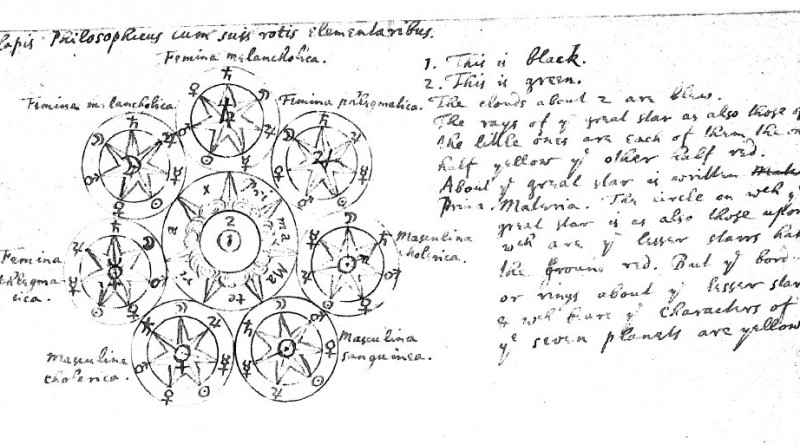 Lapis Philosophicus cum suis rotis elementaribus.
Femina melancholica.
Femina melancholica.
Femina phlegmatica.
Femina phlegmatica.
Masculina cholerica.
Masculina cholerica.
Masculina sanguinea.
Prima Materia
1
2
1. This is black.
2. This is green.
The clouds about 2 are blew.
The rays of ye great star as also those of
the little ones are each of them the one
half yellow ye other half red.
About ye great star is written
Prima Materia. The circle on wch ye
great star is as also those upon
wch are ye lesser starrs hath
the ground red. But ye bord
or rings about ye lesser star
& wch bare ye characters of
ye seven planets are yellow